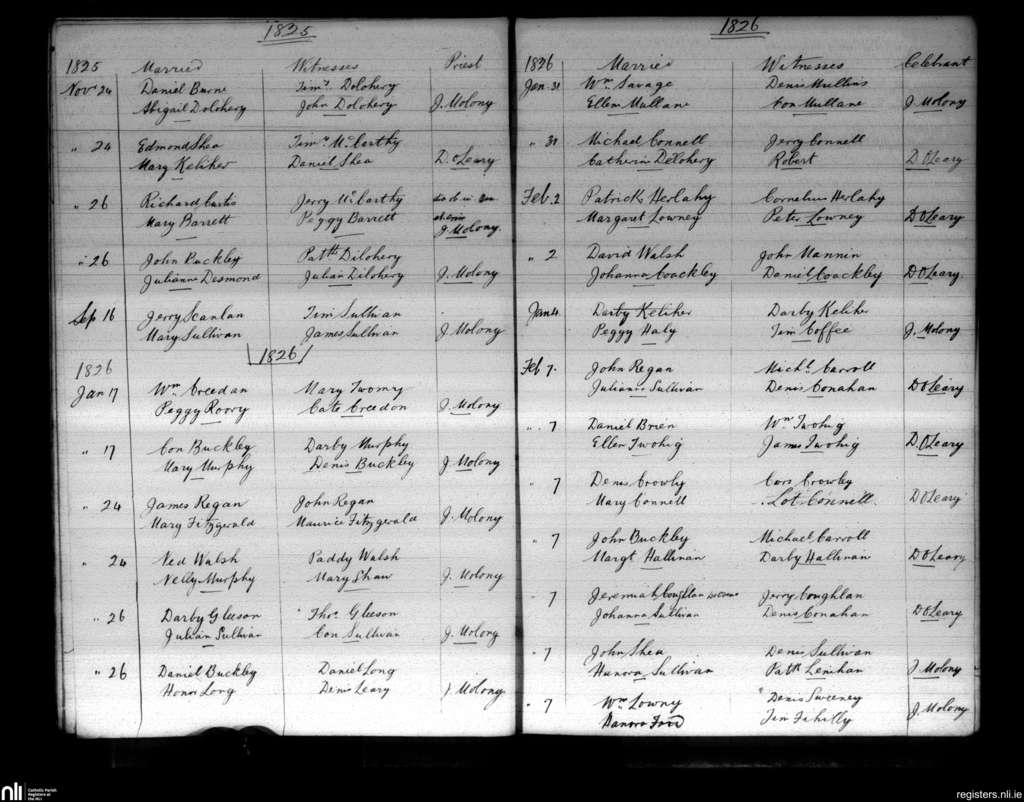 1825
1825 Married Witnesses Priest
Novr 24 Daniel Burne Timy. Dolohery
Abigail Dolohery John Dolohery J. Molony
" 24 Edmond Shea Timy. McCarthy
Mary Keliher Daniel Shea D. O'Leary
" 26 Richard Curtis Jerry McCarthy
Mary Barrett Peggy Barrett J Molony
" 26 John Buckley Patk Dilohery
Julianne Desmond Julian Dilohery J. Molony
Sep 16 Jerry Scanlan Tim Sullivan
Mary Sullivan James Sullivan J Molony
1826
1826
Jan 17 Wm Creedan Mary Twomy
Peggy Roory Cate Creedon J. Molony
" 17 Con Buckley Darby Murphy
Mary Murphy Denis Buckley J. Molony
" 24 James Regan John Regan
Mary Fitzgerald Maurice Fitzgerald J. Molony
" 24 Ned Walsh Paddy Walsh
Nelly Murphy Mary Shaw J. Molony
" 26 Darby Gleeson Thos Gleeson
Julian Sullivan Con Sullivan J. Molony
" 26 Daniel Buckley Daniel Long
Honor Long Denis Leary J Molony
1826
1826 Married Witnesses Celebrant
Jan. 31 Wm Savage Denis Mullins
Ellen Mullane Con Mullane J Molony
" 31 Michael Connell Jerry Connell
Catherin Delohery Robert D O Leary
Feb. 2 Patrick Herlahy Cornelius Herlahy
Margaret Lowney Peter Lowney D O Leary
" 2 David Walsh John Mannin
Johanna Coackley Daniel Coackley D O Leary.
Jan 4. Darby Keliher Darby Keliher
Peggy Haly Tim Coffee J. Molony
Feb 7. John Regan Michl. Carroll
Julianne Sullivan Denis Conahan D O Leary
" 7 Daniel Brien Wm Twohig
Ellen Twohig James Twohig D. O Leary
" 7 Denis Crowly Cors Crowley
Mary Connell Lot Connell. D O Leary
" 7 John Buckley Michael Carroll
Margt Hallinan Darby Hallinan D O Leary
" 7 Jeremiah Coughlan Jerry Coughlan
Johanna Sullivan Denis Conahan D O Leary
" 7 John Shea Denis Sullivan
Hanora Sullivan Patk Lenihan J Molony
" 7 Wm Lowny Denis Sweeney
Hanora Tim Fehilly J. Molony
nli Catholic Parish
Registers at
the NLI
registers.nli.ie